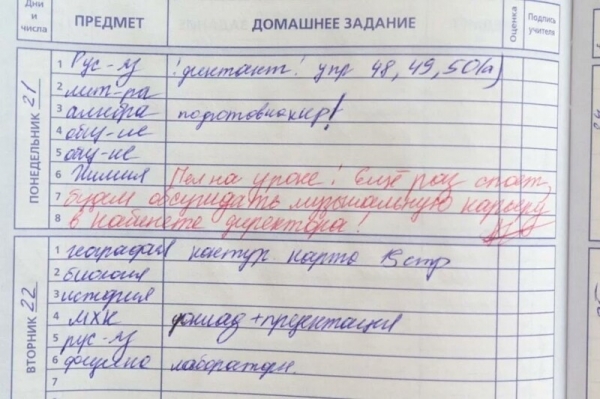 Дни и числа ПРЕДМЕТ ДОМАШНЕЕ ЗАДАНИЕ Оценка Подпись учителя
ПОНЕДЕЛЬНИК 21
1 Рус-яз !диктант! упр 48, 49, 50(а)
2 лит-ра
3 алгебра подготов на кнр!
4 общ-ие
5 общ-ие
6 Химия Пел на уроке! Ещё раз споёт,
7 будем обсуждать музыкальную карьеру
8 в кабинете директора!
ВТОРНИК 22
1 география контур. карта 13 стр
2 биология
3 история
4 МХК доклад + презентация
5 рус-яз
6 физика лаборатория.
7